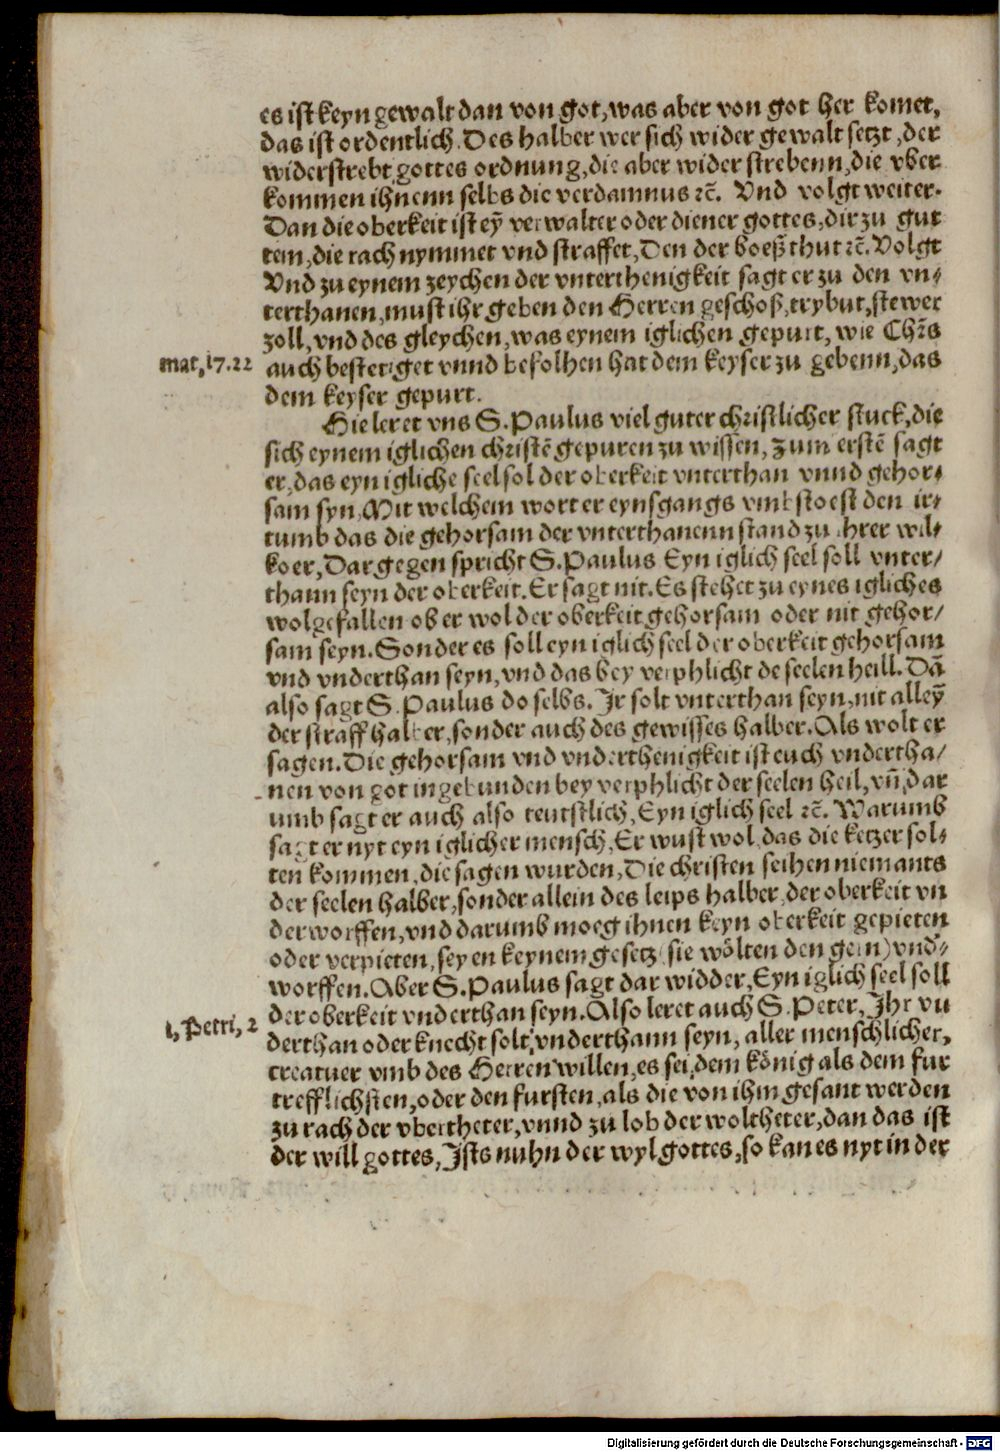 es ist keyn gewalt dan von got, was aber von got her komet,
das ist ordentlich. Des halber wer sich wider gewalt setzt, der
widerstrebt gottes ordnung, die aber wider strebenn, die vber
kommen ihnenn selbs die verdamnus ꝛc̄. Vnd volgt weiter.
Dan die oberkeit ist eȳ verwalter oder diener gottes, dir zu gut
tem, die rach nymmet vnd straffet, Den der boeß thut ꝛc̄. Volgt
Vnd zu eynem zeychen der vnterthenigkeit sagt er zu den vn⸗
terthanen, must ihr geben den Herren geschoß, trybut, stewer
zoll, vnd des gleychen, was eynem iglichen gepurt, wie Chr̄s
mat, 17. 22 auch bestetiget vnnd befolhen hat dem keyser zu gebenn, das
dem keyser gepurt.
Hie leret vns S. Paulus viel guter christlicher stuck, die
sich eynem iglichen christē gepuren zu wissen, Zum erstē sagt
er, das eyn igliche seel sol der oberkeit vnterthan vnnd gehor⸗
sam syn, Mit welchem wort er eynsgangs vmbstoest den ir⸗
tumb das die gehorsam der vnterthanenn stand zu ihrer wil⸗
koer, Dargegen spricht S. Paulus Eyn iglich seel soll vnter⸗
thann seyn der oberkeit. Er sagt nit. Es stehet zu eynes igliches
wolgefallen ob er wol der oberkeit gehorsam oder nit gehor⸗
sam seyn. Sonder es soll eyn iglich seel der oberkeit gehorsam
vnd vnderthan seyn, vnd das bey verphlicht de seelen heill. Dā
also sagt S. Paulus do selbs. Ir solt vnterthan seyn, nit alleȳ
der straff halber, sonder auch des gewisses halber. Als wolt er
sagen. Die gehorsam vnd vnderthenigkeit ist euch vndertha⸗
nen von got ingebunden bey verphlicht der seelen heil, vn̄ dar
umb sagt er auch also teutstlich, Eyn iglich seel ꝛc̄. Warumb
sagt er nyt eyn iglicher mensch, Er wust wol das die ketzer sol⸗
ten kommen, die sagen wurden, Die christen seihen niemants
der seelen halber, sonder allein des leips halber, der oberkeit vn
derworffen, vnd darumb moeg ihnen keyn oberkeit gepieten
oder verpieten, seyen keynem gesetz (sie wölten den gern) vnd⸗
worffen. Aber S. Paulus sagt dar widder, Eyn iglich seel soll
der oberkeit vnderthan seyn. Also leret auch S. Peter, Ihr vn
1, Petri, 2 derthan oder knecht solt vnderthann seyn, aller menschlicher,
creatuer vmb des Herren willen, es sei, dem könig als dem fur
trefflichsten, oder den fursten, als die von ihm gesant werden
zu rach der vbertheter, vnnd zu lob der woltheter, dan das ist
der will gottes, Ists nuhn der wyl gottes, so kan es nyt in der
Digitalisierung gefördert durch die Deutsche Forschungsgemeinschaft - DFG